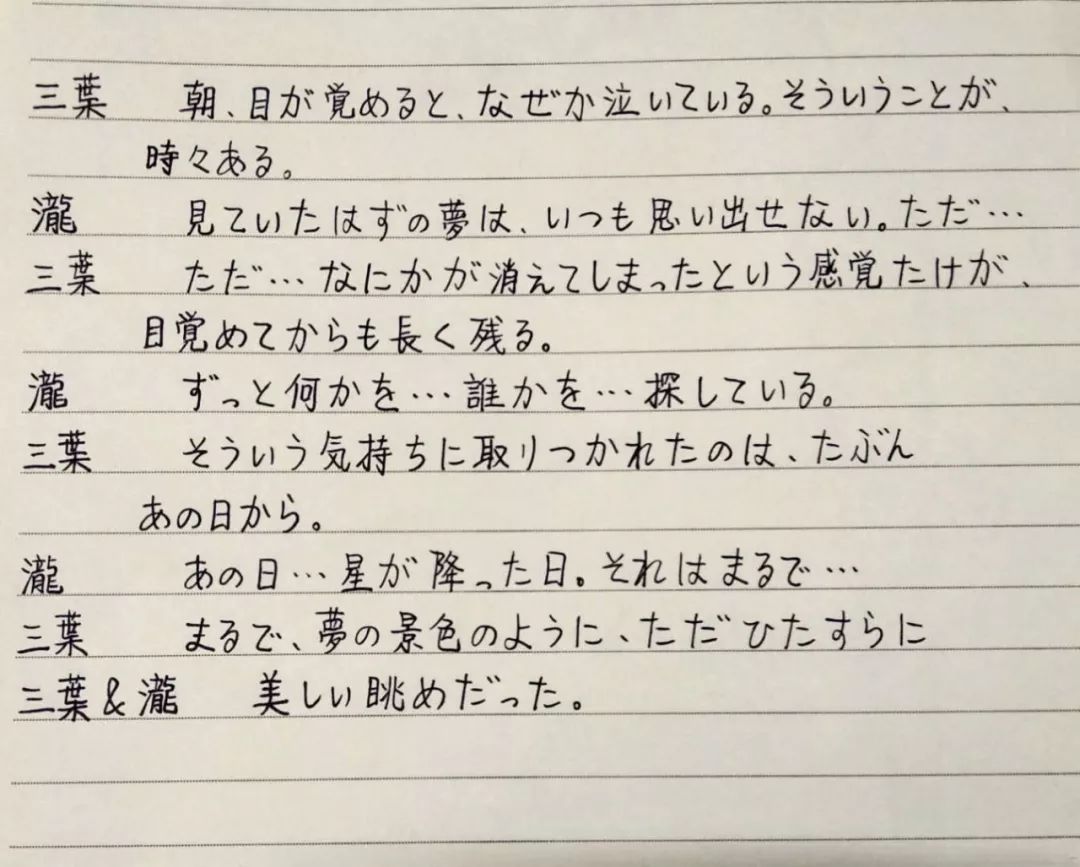 三葉　朝、目が覚めると、なぜか泣いている。そういうことが、
時々ある。
瀧　見ていたはずの夢は、いつも思い出せない。ただ…
三葉　ただ…なにかが消えてしまったという感覚たけが、
目覚めてからも長く残る。
瀧　ずっと何かを…誰かを…探している。
三葉　そういう気持ちに取りつかれたのは、たぶん
あの日から。
瀧　あの日…星が降った日。それはまるで…
三葉　まるで、夢の景色のように、ただひたすらに
三葉&瀧　美しい眺めだった。